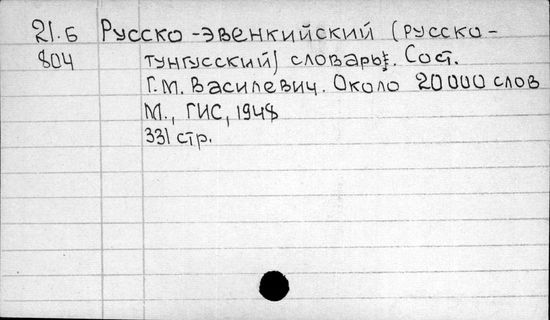 21.Б Русско-эвенкийский (русско-
804 тунгусский) словарь. Сост.
Г.М. Василевич. Около 20000 слов
М., ГИС, 1948
331 стр.